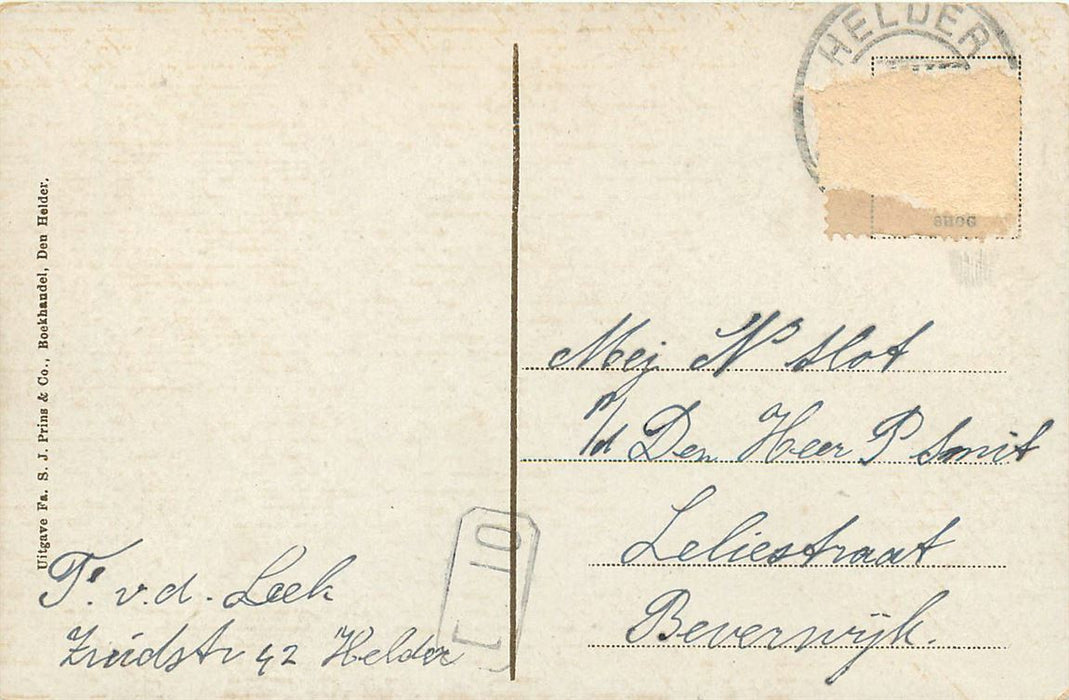 HELDER
Uitgave Fa. S. J. Prins & Co., Boekhandel, Den Helder.
Mej N Slot
p/d Den Heer P Smit
Leliestraat
Beverwijk.
T. v.d. Leek
Zuidstr 42 Helder